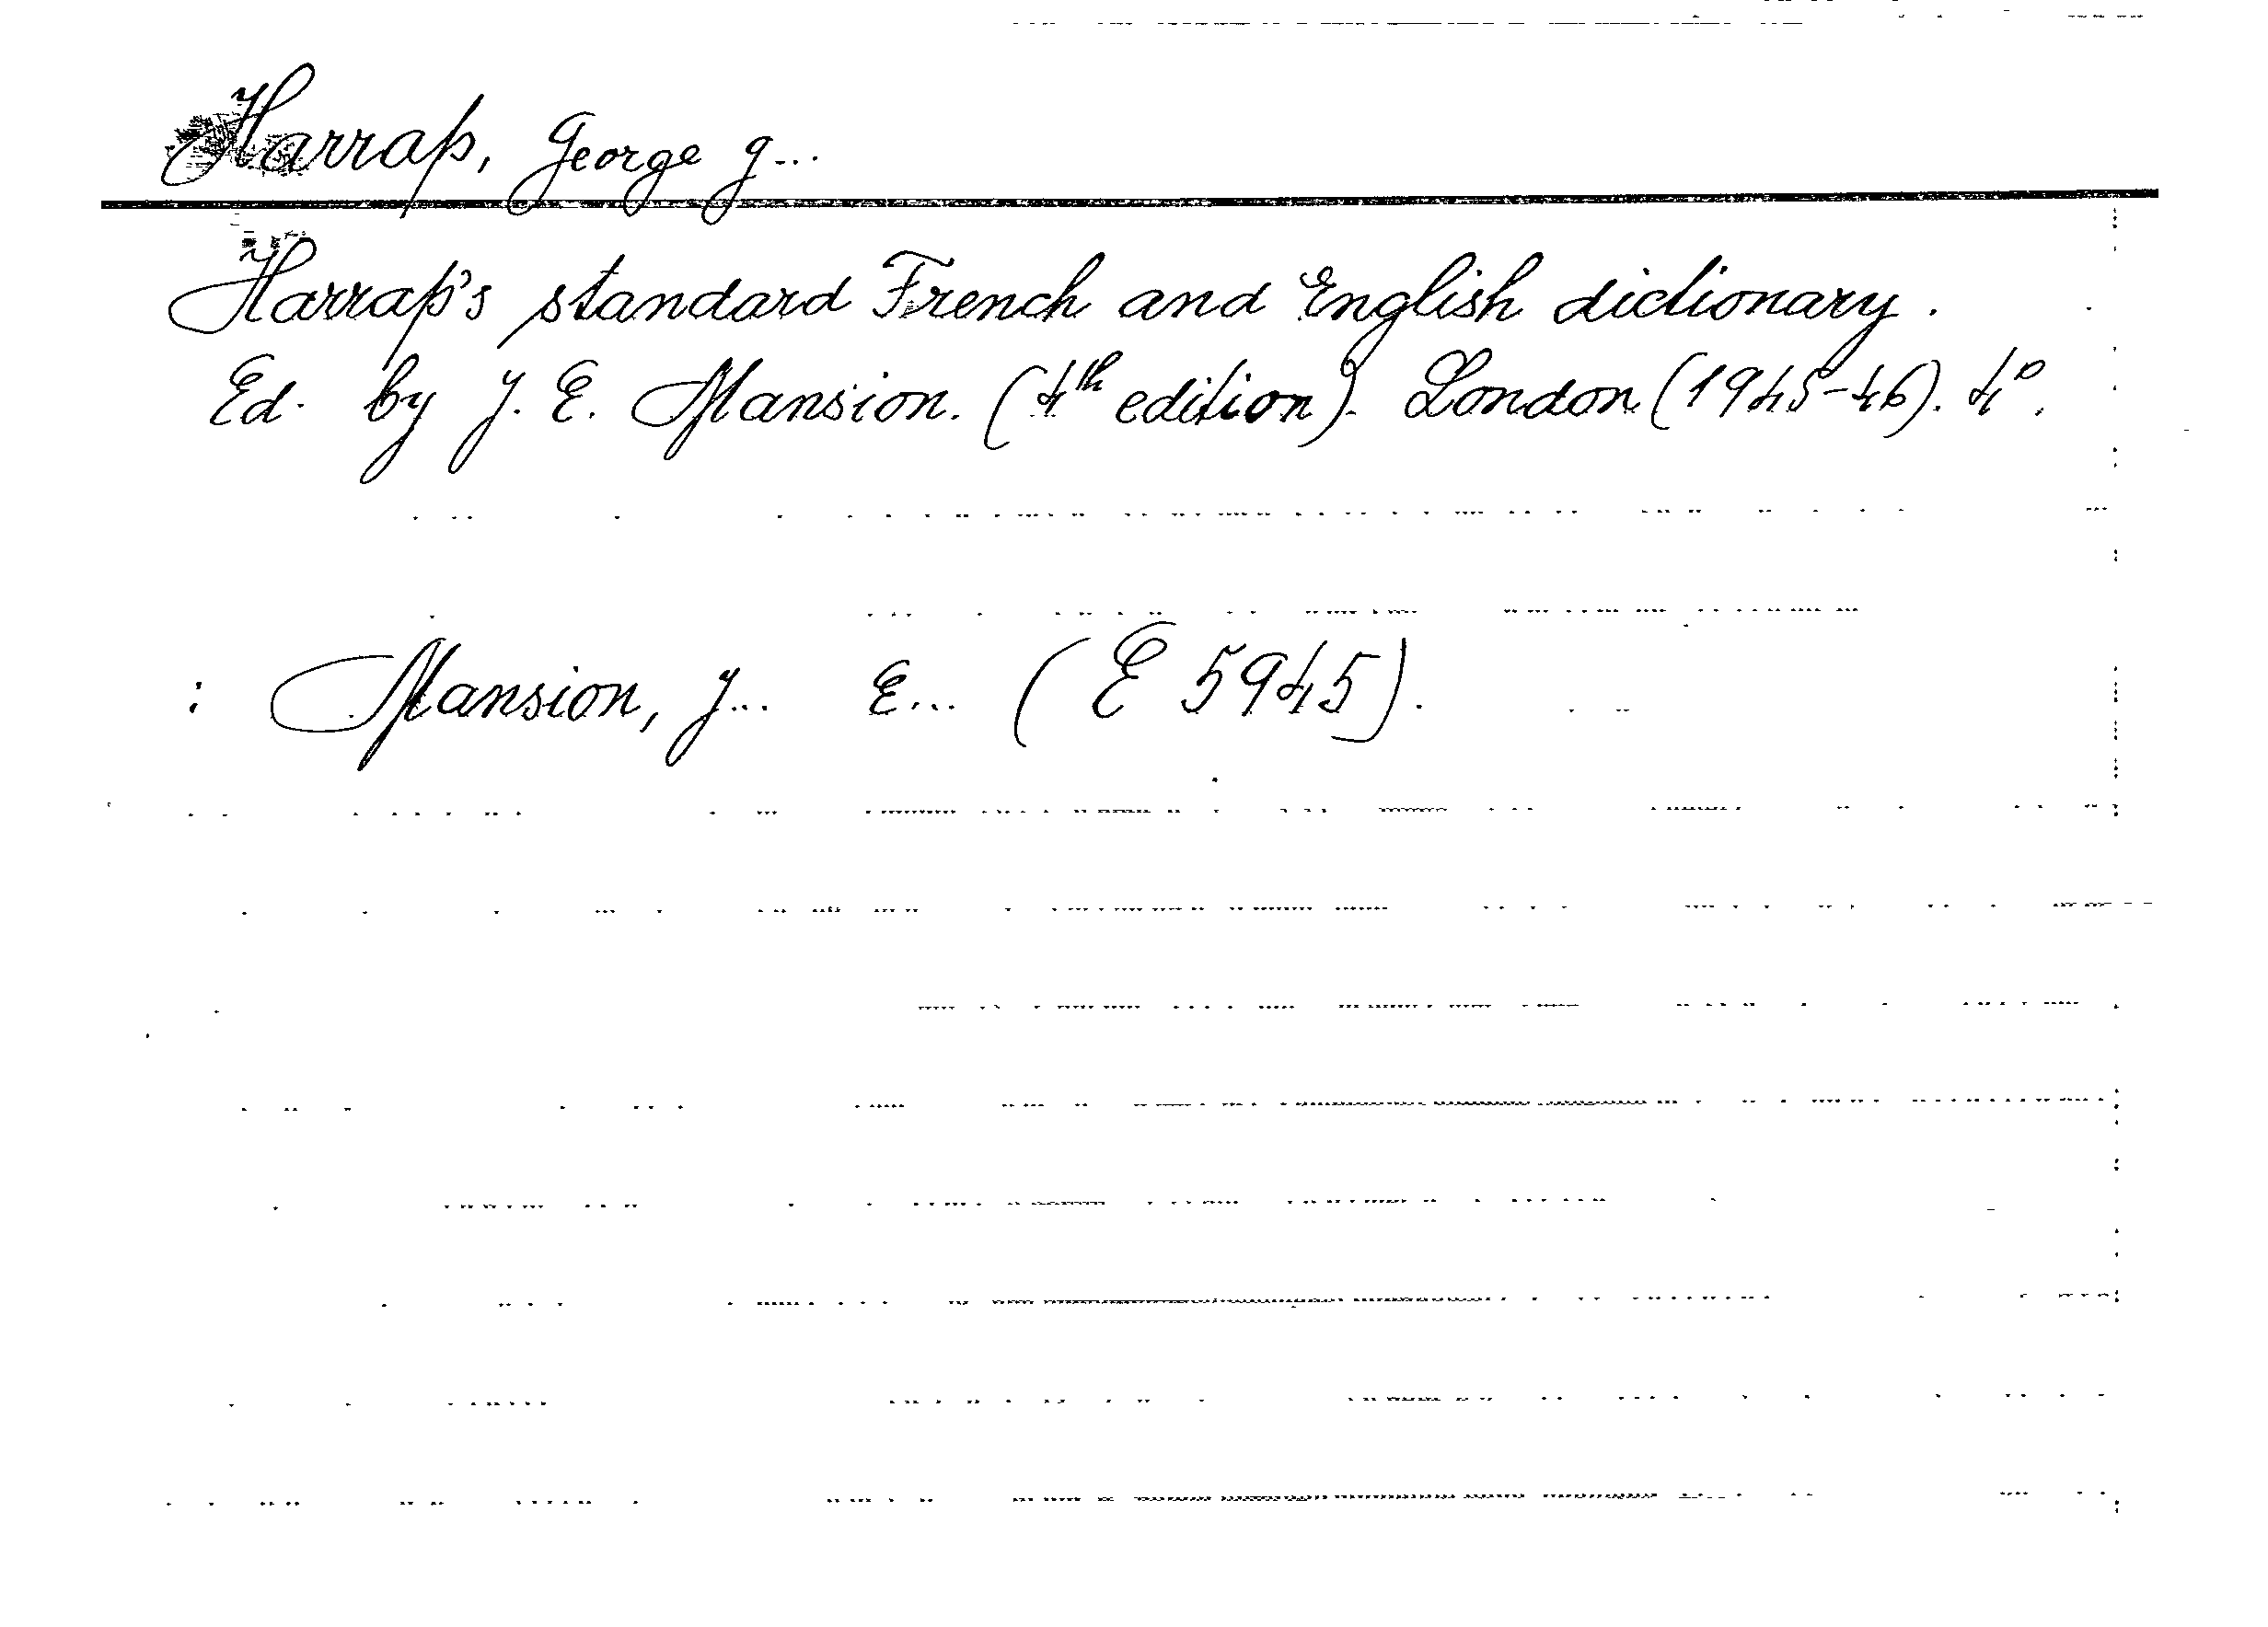 Harrap, George G...
Harrap's standard French and English dictionary.
Ed. by J. E. Mansion. (4th edition). London (1945-46). 4°.
: Mansion, J... E... (E 5945).